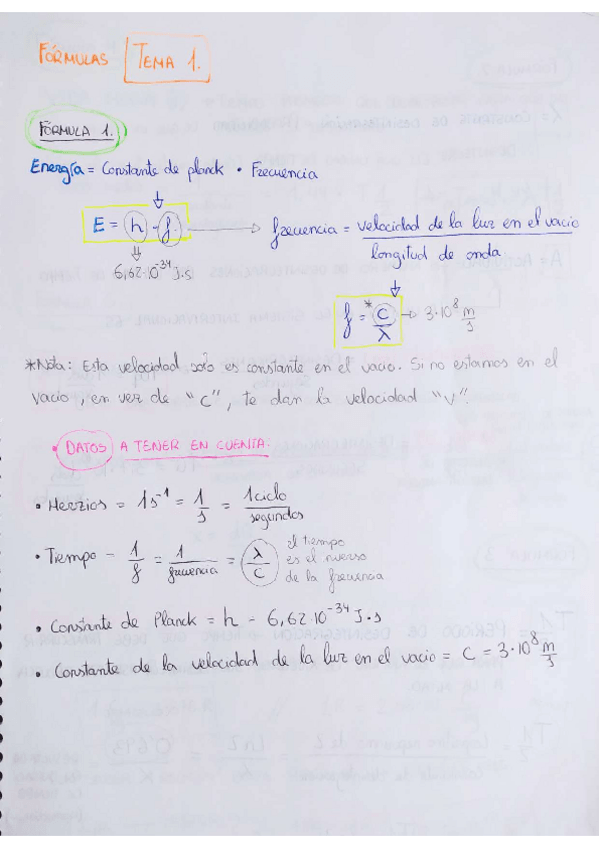 FÓRMULAS TEMA 1.
FÓRMULA 1.
Energía = Constante de planck · Frecuencia
E = h · f → frecuencia = velocidad de la luz en el vacio / longitud de onda
6,62·10^-34 J.s
f = * c / λ → 3·10^8 m/s
*Nota: Esta velocidad solo es constante en el vacio. Si no estamos en el
vacio, en vez de "c", te dan la velocidad "v".
• DATOS A TENER EN CUENTA:
• Herzios = 1s^-1 = 1/s = 1 ciclo / segundos
• Tiempo = 1/f = 1/frecuencia = λ/c el tiempo
es el inverso
de la frecuencia
• Constante de Planck = h = 6,62·10^-34 J.s
• Constante de la velocidad de la luz en el vacio = C = 3·10^8 m/s